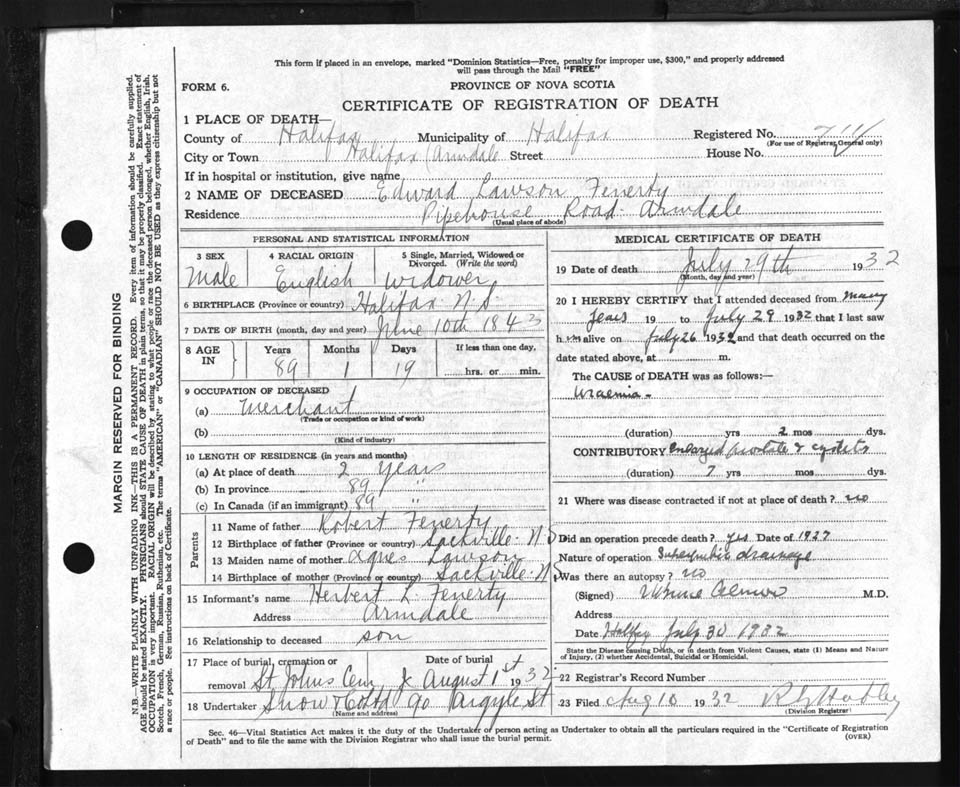 This form if placed in an envelope, marked "Dominion Statistics—Free, penalty for improper use, $300," and properly addressed
will pass through the Mail "FREE"
FORM 6.
PROVINCE OF NOVA SCOTIA
CERTIFICATE OF REGISTRATION OF DEATH
1 PLACE OF DEATH—
County of Halifax Municipality of Halifax Registered No.
(For use of Registrar General only)
City or Town Halifax (Armdale Street House No.
If in hospital or institution, give name
2 NAME OF DECEASED Edward Lawson Fenerty
Residence Pipehouse Road Armdale
(Usual place of abode)
PERSONAL AND STATISTICAL INFORMATION
3 SEX 4 RACIAL ORIGIN 5 Single, Married, Widowed or
Divorced. (Write the word)
Male English Widower
6 BIRTHPLACE (Province or country) Halifax N.S
7 DATE OF BIRTH (month, day and year) June 10th 1843
8 AGE IN Years Months Days If less than one day,
89 1 19 hrs. or min.
9 OCCUPATION OF DECEASED
(a) Merchant
(Trade or occupation or kind of work)
(b)
(Kind of industry)
10 LENGTH OF RESIDENCE (in years and months)
(a) At place of death 2 years
(b) In province 89 "
(c) In Canada (if an immigrant) 89 "
Parents
11 Name of father Robert Fenerty
12 Birthplace of father (Province or country) Sackville N S
13 Maiden name of mother Agnes Lawson
14 Birthplace of mother (Province or country) Sackville N S
15 Informant's name Herbert L. Fenerty
Address Armdale
16 Relationship to deceased son
17 Place of burial, cremation or Date of burial
removal St Johns Cem August 1st 1932
18 Undertaker Snow & Co Ltd 90 Argyle St
(Name and address)
MEDICAL CERTIFICATE OF DEATH
19 Date of death July 29th 1932
(Month, day and year)
20 I HEREBY CERTIFY that I attended deceased from many
years 19 to July 29 1932 that I last saw
him alive on July 26 1932 and that death occurred on the
date stated above, at m.
The CAUSE of DEATH was as follows:—
Uraemia -
(duration) yrs 2 mos dys.
CONTRIBUTORY Enlarged prostate & cystitis
(duration) 7 yrs mos dys.
21 Where was disease contracted if not at place of death? no
Did an operation precede death? yes Date of 1927
Nature of operation Suprapubic drainage
Was there an autopsy? no
(Signed) M.D.
Address
Date Halifax July 30 1932
State the Disease causing Death, or in death from Violent Causes, state (1) Means and Nature
of Injury, (2) whether Accidental, Suicidal or Homicidal.
22 Registrar's Record Number
23 Filed Aug 10 1932
(Division Registrar)
Sec. 46—Vital Statistics Act makes it the duty of the Undertaker or person acting as Undertaker to obtain all the particulars required in the "Certificate of Registration
of Death" and to file the same with the Division Registrar who shall issue the burial permit.
(OVER)
MARGIN RESERVED FOR BINDING
N.B.—WRITE PLAINLY WITH UNFADING INK—THIS IS A PERMANENT RECORD. Every item of information should be carefully supplied.
AGE should be stated EXACTLY. PHYSICIANS should STATE CAUSE OF DEATH in plain terms, so that it may be properly classified. Exact statement of
OCCUPATION is very important. RACIAL ORIGIN will be described by stating to what people or race the deceased person belonged, whether English, Irish,
Scotch, French, German, Russian, Ruthenian, etc. The terms "AMERICAN" or "CANADIAN" SHOULD NOT BE USED as they express citizenship but not
a race or people. See instructions on back of Certificate.